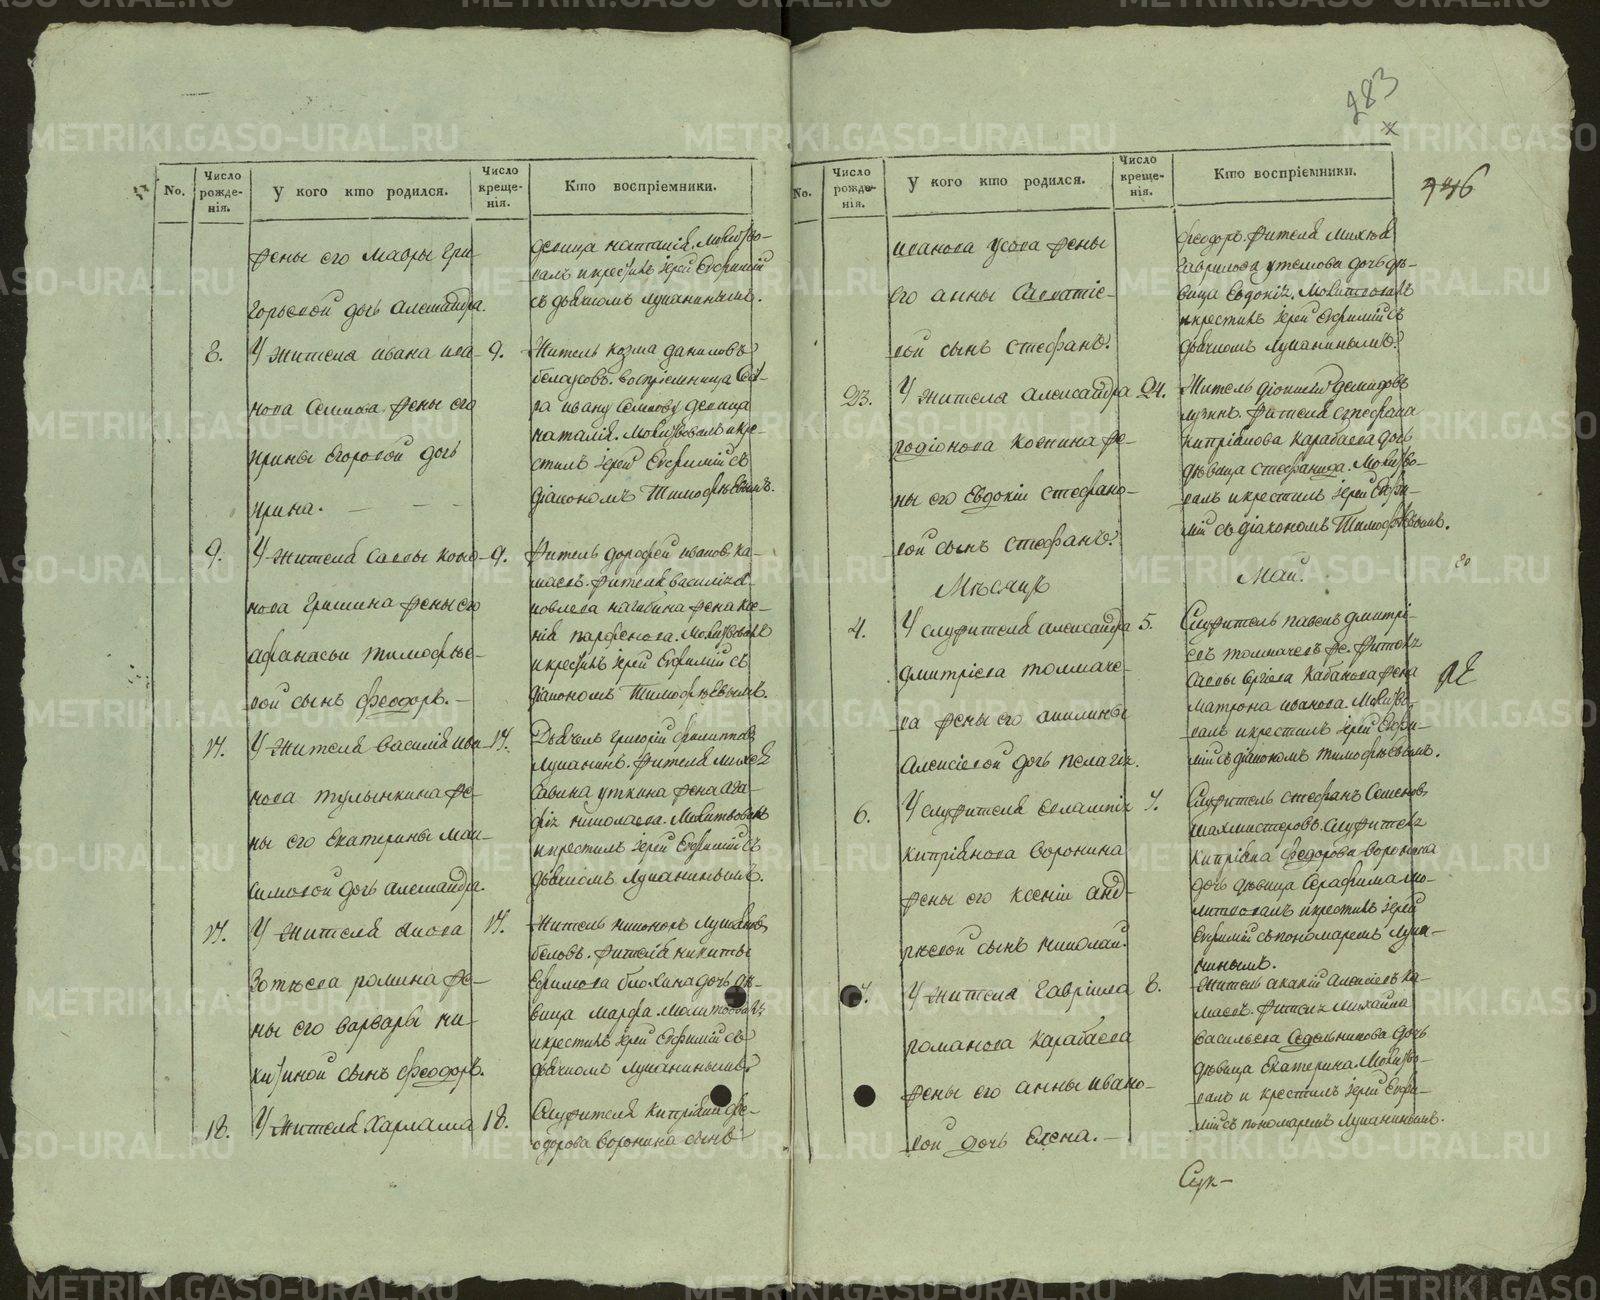 283
х
No.
Число рожде-нія.
У кого кто родился.
Число креще-нія.
Кто воспріемники.
жены его Мавры Гри-
горьевой дочь Александра.
девица наталія. Молитво-
валъ и крестилъ іерей Евфимій
съ дьячкомъ Лупанинымъ.
8.
У жителя ивана ива-
нова Семкова жены его
ирины Егоровой дочь
ирина.
9.
Житель козма даниловъ
белоусовъ. воспріемница
ивану Семкову девица
наталія. Молитвовалъ и кре-
стилъ іерей Евфимій съ
діакономъ Тимофѣевымъ.
9.
У жителя Саввы
нова Гришина жены его
афанасьи тимофѣе-
вой сынъ феодоръ.
9.
Житель дорофей ивановъ ка-
маевъ. жителя василія
нагибина жена ксе-
нія парфенова. Молитвовалъ
и крестилъ іерей Евфимій съ
діакономъ Тимофѣевымъ.
17.
У жителя василія ива-
нова тулынкина же-
ны его екатерины мак-
симовой дочь александра.
17.
Дьячекъ григорій филипповъ
Лупанинъ. жителя
Савина уткина жена ага-
фія николаева. Молитвовалъ
и крестилъ іерей Евфимій съ
дьячкомъ Лупанинымъ.
17.
У жителя
Зотѣева ромина же-
ны его варвары ни-
китиной сынъ феодоръ.
17.
Житель никоноръ
беловъ. жителя никиты
Ефимова блохина дочь дѣ-
вица марфа. Молитвовалъ
и крестилъ іерей Евфимій съ
дьячкомъ Лупанинымъ.
18.
У жителя Харлама
18.
Служителя кипріана фе-
одорова воронина сынъ
No.
Число рожде-нія.
У кого кто родился.
Число креще-нія.
Кто воспріемники.
746
иванова усова жены
его анны Савватіе-
вой сынъ стефанъ.
феодоръ. жителя
Гаврилова утемова дочь дѣ-
вица евдокія. Молитвовалъ
и крестилъ іерей Евфимій съ
дьячкомъ Лупанинымъ.
23.
У жителя александра
родіонова коснина же-
ны его Евдокіи стефано-
вой сынъ стефанъ.
24.
Житель діонисій демидовъ
лузинъ. жителя стефана
кипріянова карабаева дочь
дѣвица стефанида. Молитво-
валъ и крестилъ іерей Евфи-
мій съ діакономъ Тимофѣевымъ.
Мѣсяцъ
Май.
20
4.
У служителя александра
дмитріева толмаче-
ва жены его акилины
Алексіевой дочь пелагія.
5.
Служитель павелъ дмитрі-
евъ толмачевъ же. жителя
Саввы сергіева Кабанова жена
матрона иванова. Молитво-
валъ и крестилъ іерей Евфи-
мій съ діакономъ тимофѣевымъ.
6.
У служителя евлампія
кипріянова воронина
жены его ксеніи анд-
рѣевой сынъ николай.
7.
Служитель стефанъ Семеновъ
шахмистеровъ. служителя
кипріана федорова воронина
дочь дѣвица Серафима мо-
литвовалъ и крестилъ іерей
Евфимій съ пономаремъ Лупа-
нинымъ.
7.
У жителя гавріила
романова карабаева
жены его анны ивано-
вой дочь елена.
8.
Житель акакій алексіевъ ка-
маевъ. жителя михаила
васильева Седельникова дочь
дѣвица екатерина. Молитво-
валъ и крестилъ іерей Евфи-
мій съ пономаремъ Лупанинымъ.
METRIKI.GASO-URAL.RU